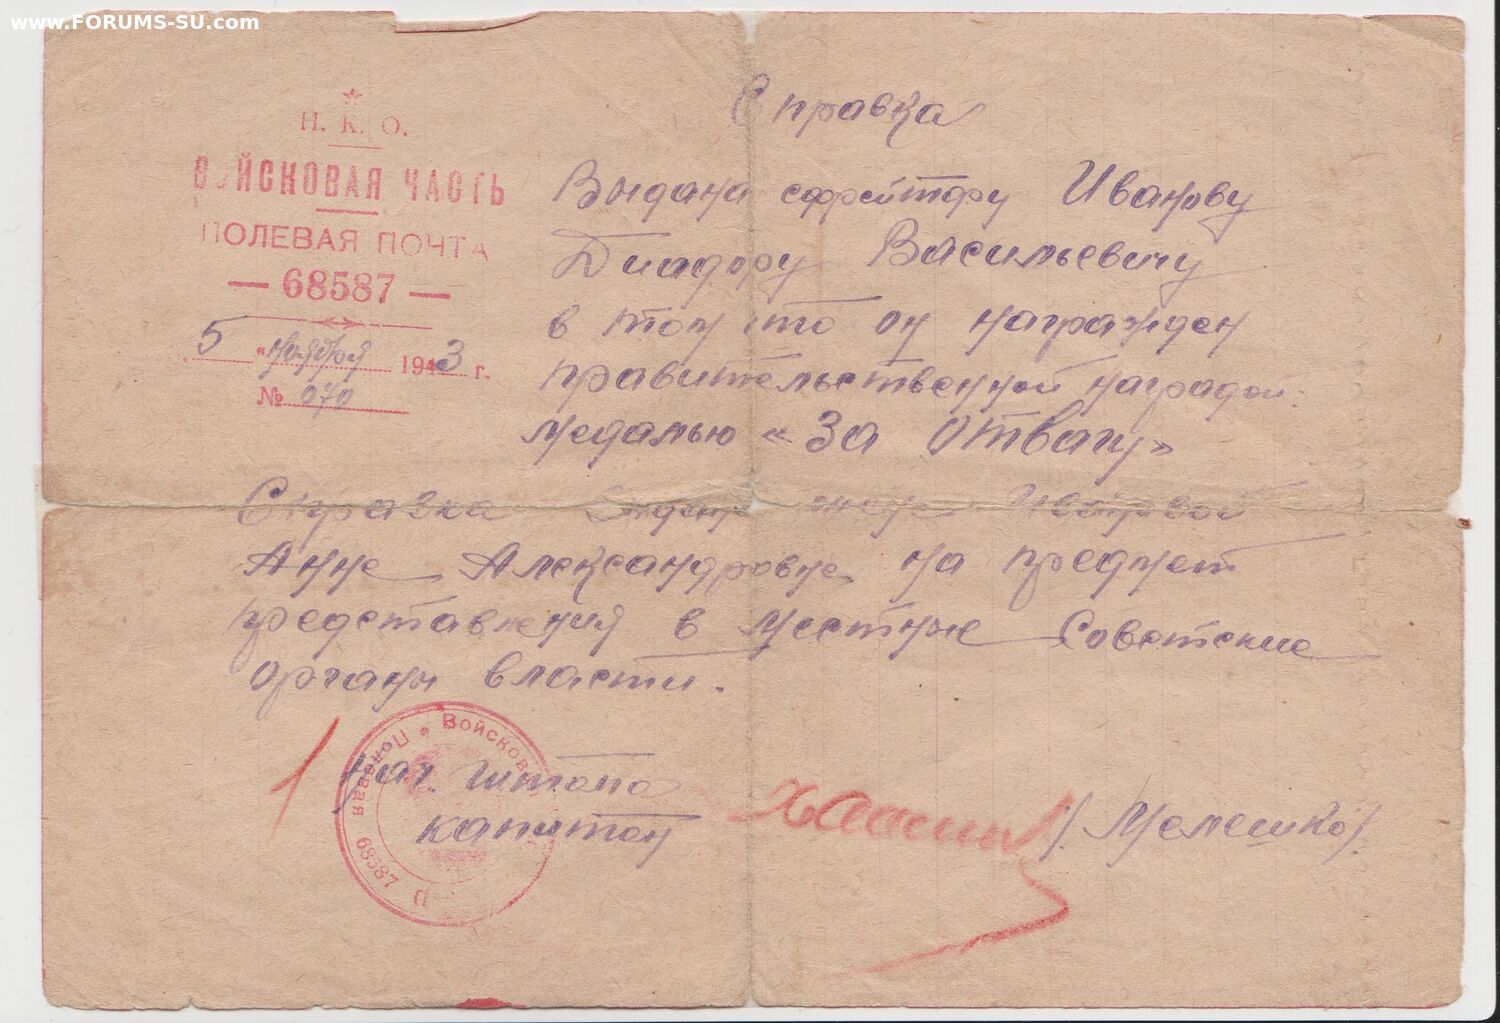 www.FORUMS-SU.com
Н. К. О.
ВОЙСКОВАЯ ЧАСТЬ
ПОЛЕВАЯ ПОЧТА
— 68587 —
5 "ноября 1943 г.
№ 070
Справка
Выдана ефрейтору Иванову
Диадору Васильевичу
в том что он награжден
правительственной наградой:
медалью «За отвагу»
Справка жене Ивановой
Анне Александровне на предмет
представления в местные Советские
органы власти.
Нач. штаба
капитан
/Мелешко/.
Войсков
Полевая
68587 П